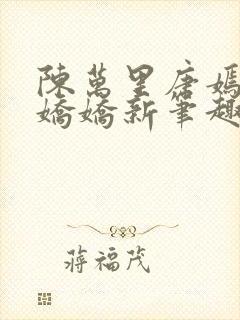 陳萬里唐嫣
嬌嬌新筆趣
蔣福茂